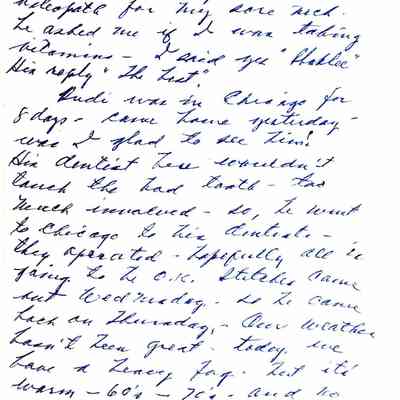 osteopath for my sore neck.
he asked me if I was taking
vitamins - I said yes "Shaklee"
His reply "The best"
Rudi was in Chicago for
8 days - came home yesterday -
was I glad to see him!
His dentist here wouldn't
touch the bad tooth - too
much involved - so, he went
to Chicago to his dentists -
they operated - hopefully all is
going to be O.K. Stitches came
out Wednesday - so he came
back on Thursday, - Our weather
hasn't been great - today we
have a heavy fog - but it's
warm - 60's - 70's - and no